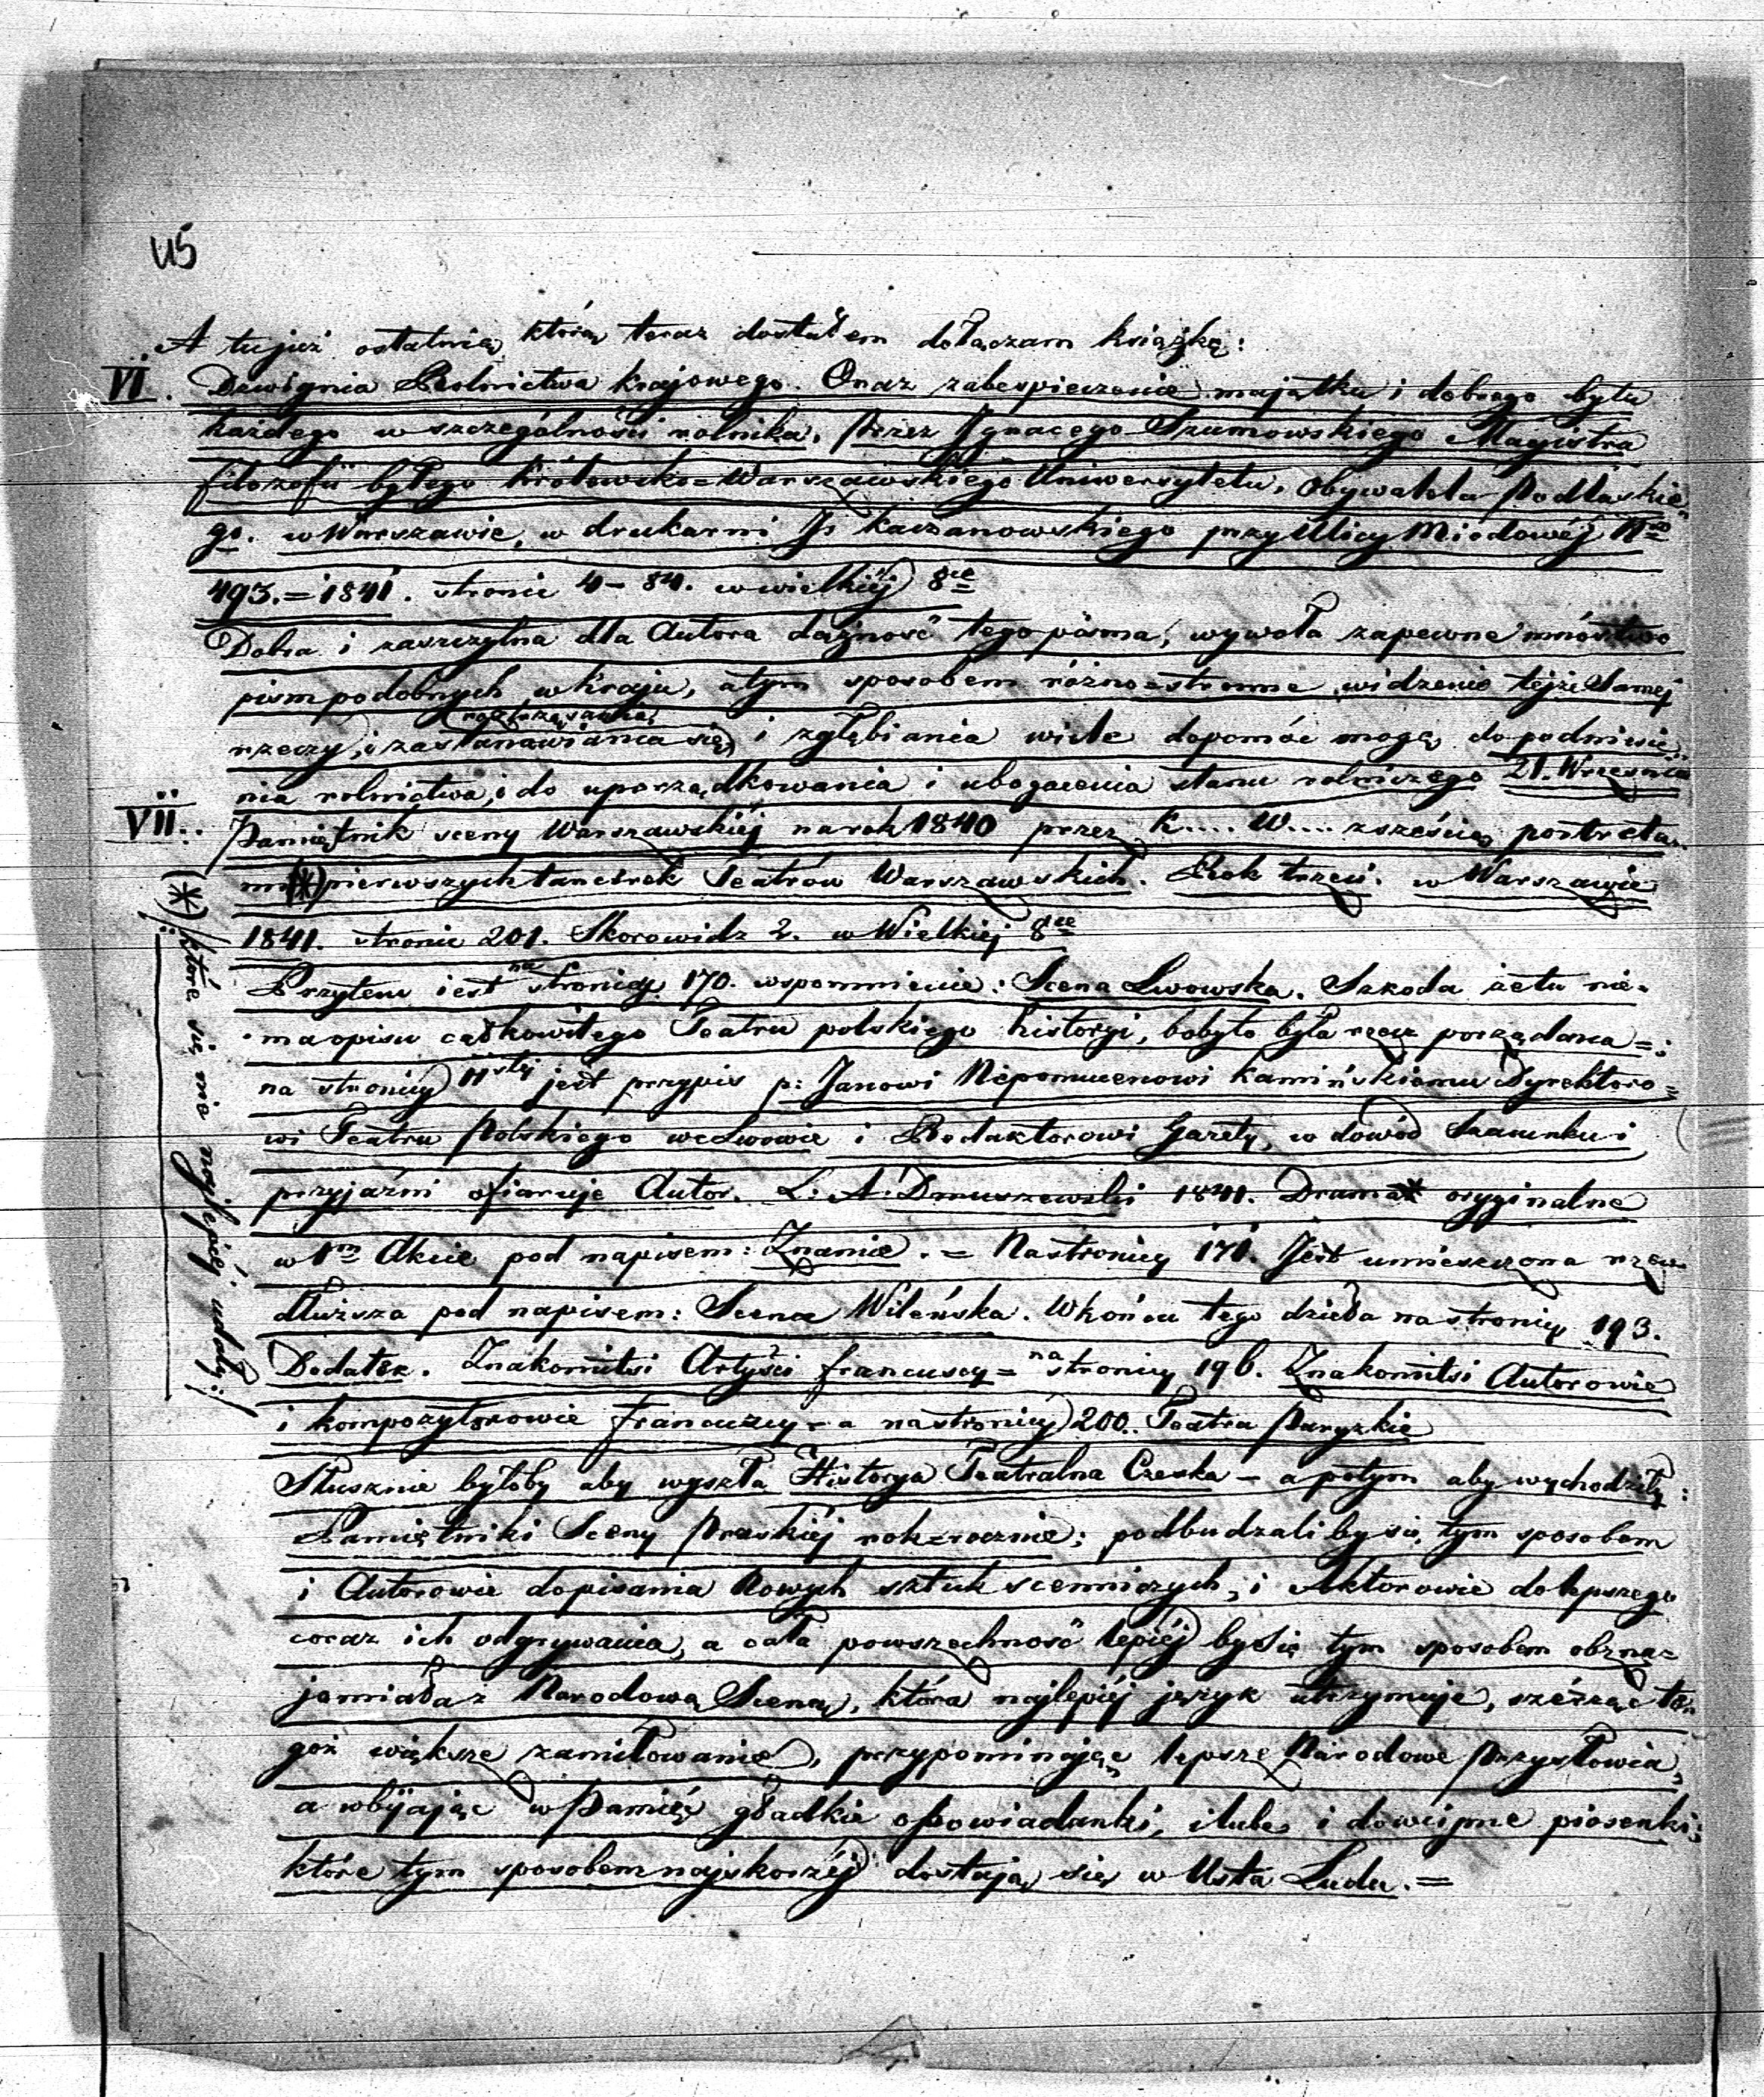 45
A tu już ostatnią którą teraz dostałem dołączam książkę:
VI. Dzwignia Rolnictwa krajowego. Oraz zabespieczenie majątku i dobrego bytu
każdego w szczególności rolnika. Przez Ignacego Szumowskiego Magistra
filozofii byłego Królowsko=Warszawskiego Uniwersytetu, Obywatela Podlaskie„
go. w Warszawie, w drukarni J. Kaczanowskiego przy Ulicy Miodowéj Nro
493.=1841. stronic 4–84. w wielkiéj 8ce
Dobra i zaszczytna dla Autora dążność tego pisma, wywoła zapewne mnóstwo
pism podobnych w kraju, a tym sposobem różno=stronne widzenie tejże samej
rzeczy, i zastanawiania się, roztrząsania, i zgłębiania wiele dopomóc mogą do podniesie„
nia rolnictwa, i do uporządkowania i ubogacenia stanu rolniczego 21. Września
VII.. Pamiętnik sceny Warszawskiéj na rok 1840 przez K.... W.... z sześcią portreta„
mi (*) pierwszych tancérek Teatrów Warszawskich. Rok trzeci. w Warszawie
1841. stronic 201. Skorowidz 2. w Wielkiej 8ce
Przytem iest na stronicy 170. wspomnienie: Scena Lwowska. Szkoda że tu nie„
ma opisu całkowitego Teatru polskiego historyi, bo by to była rzecz porządana=;
na stronicy 11stej jest przypis p: Janowi Nepomucenowi Kamińskiemu Dyrektoro=
wi Teatru Polskiego we Lwowie i Redaktorowi Gazety, w dowód Szacunku i
przyjaźni ofiaruje Autor. L: A: Dmuszewski 1841. Drama oryginalne
w 1m Akcie pod napisem: Znamie. = Na stronicy 171. Jest umieszczona rzecz
dłuższa pod napisem: Scena Wileńska. W końcu tego dzieła na stronicy 193.
Dodatek. Znakomitsi Artyści francuscy = na stronicy 196. Znakomitsi Autorowie
i kompozytorowie francuzcy = a na stronicy 200.. Teatra Paryzkie
Słusznie byłoby aby wyszła Historya Teatralna Czeska – a potym aby wychodziły:
Pamiętniki Sceny Praskiéj rok=rocznie; podbudzaliby się tym sposobem
i Autorowie do pisania Nowych sztuk scenniczych, i Aktorowie do lepszego
coraz ich odgrywania, a cała powszechność lepiéj by się tym sposobem obzna=
jamiała z Narodową Sceną, która najlepiéj język utrzymuje, szérząc te„
goż większe zamiłowanie, przypominając lepsze Narodowe Przysłowia,
a wbijając w Pamięć gładkie opowiadanki, i lube i dowcipne piosenki;
które tym sposobem najskorzéj dostają się w Usta Ludu.=
(*) /:które się nie najlepiéj udały:/